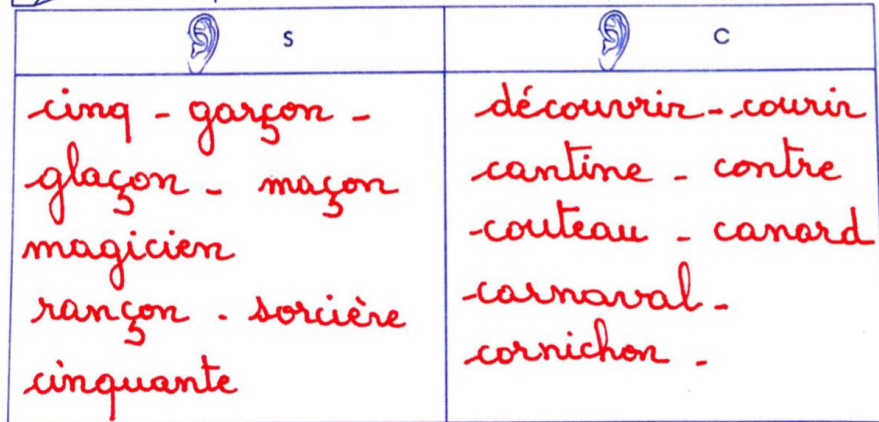 s
cinq - garçon -
glaçon - maçon
magicien
rançon - sorcière
cinquante
c
découvrir - courir
cantine - contre
-couteau - canard
-carnaval -
cornichon -